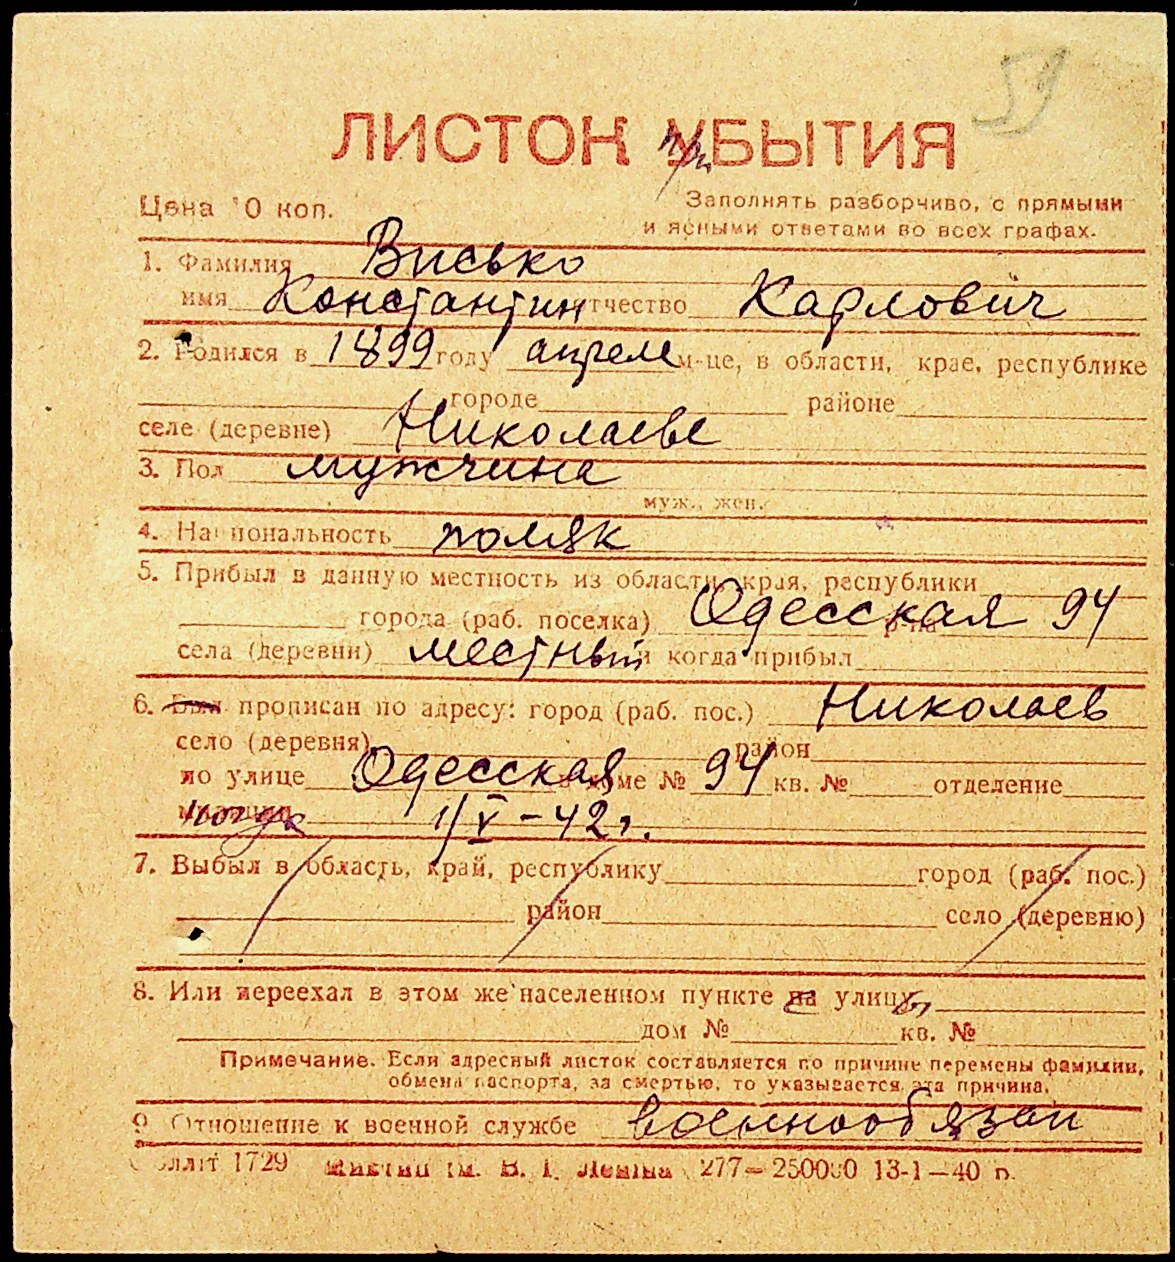 59
ЛИСТОК при УБЫТИЯ
Цена 10 коп.
Заполнять разборчиво, с прямыми
и ясными ответами во всех графах.
1. Фамилия Висько
имя Константин отчество Карлович
2. Родился в 1899 году апреле м-це, в области, крае, республике
городе районе
селе (деревне) Николаеве
3. Пол мужчина
муж., жен.
4. Национальность поляк
5. Прибыл в данную местность из области, края, республики
города (раб. поселка) Одесская 94 р-на
села (деревни) местный и когда прибыл
6. Был прописан по адресу: город (раб. пос.) Николаев
село (деревня) район
по улице Одесская в доме № 94 кв. № отделение
милиции когда 1/V-42г.
7. Выбыл в область, край, республику город (раб. пос.)
район село (деревню)
8. Или переехал в этом же населенном пункте на с улицу ы
дом № кв. №
Примечание. Если адресный листок составляется по причине перемены фамилии,
обмена паспорта, за смертью, то указывается эта причина.
9 Отношение к военной службе военнообязан
1729 Ленина 277—250000 13-1—40 г.